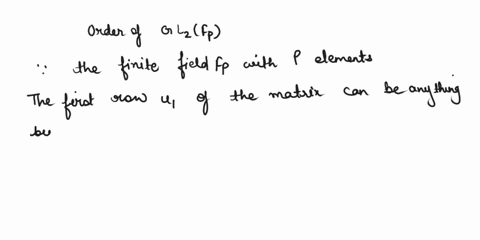 Order of GL₂(Fp)
∵ the finite field Fp with P elements
The first row u₁ of the matrix can be anything
bu